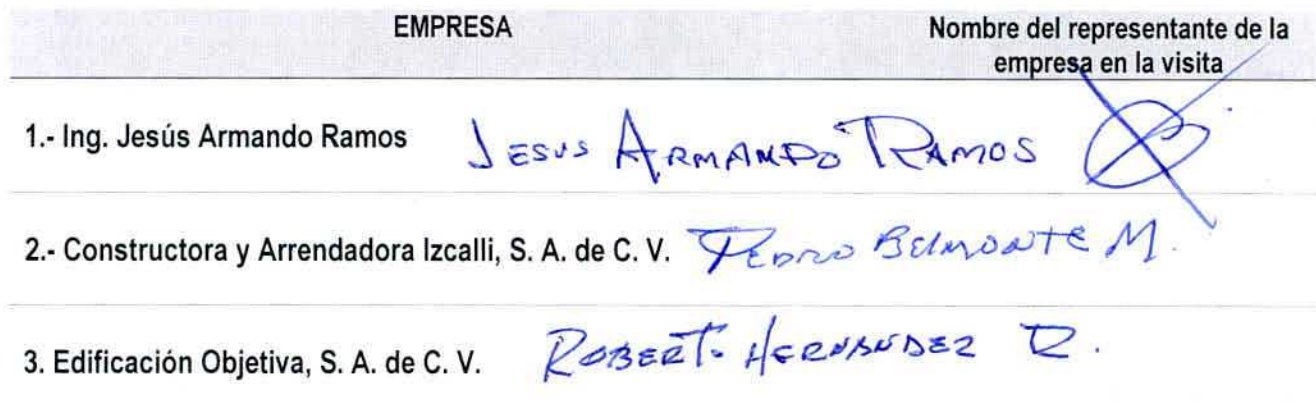 EMPRESA Nombre del representante de la
empresa en la visita
1.- Ing. Jesús Armando Ramos JESUS ARMANDO RAMOS
2.- Constructora y Arrendadora Izcalli, S. A. de C. V. PEDRO BELMONTE M.
3. Edificación Objetiva, S. A. de C. V. ROBERTO HERNANDEZ R.